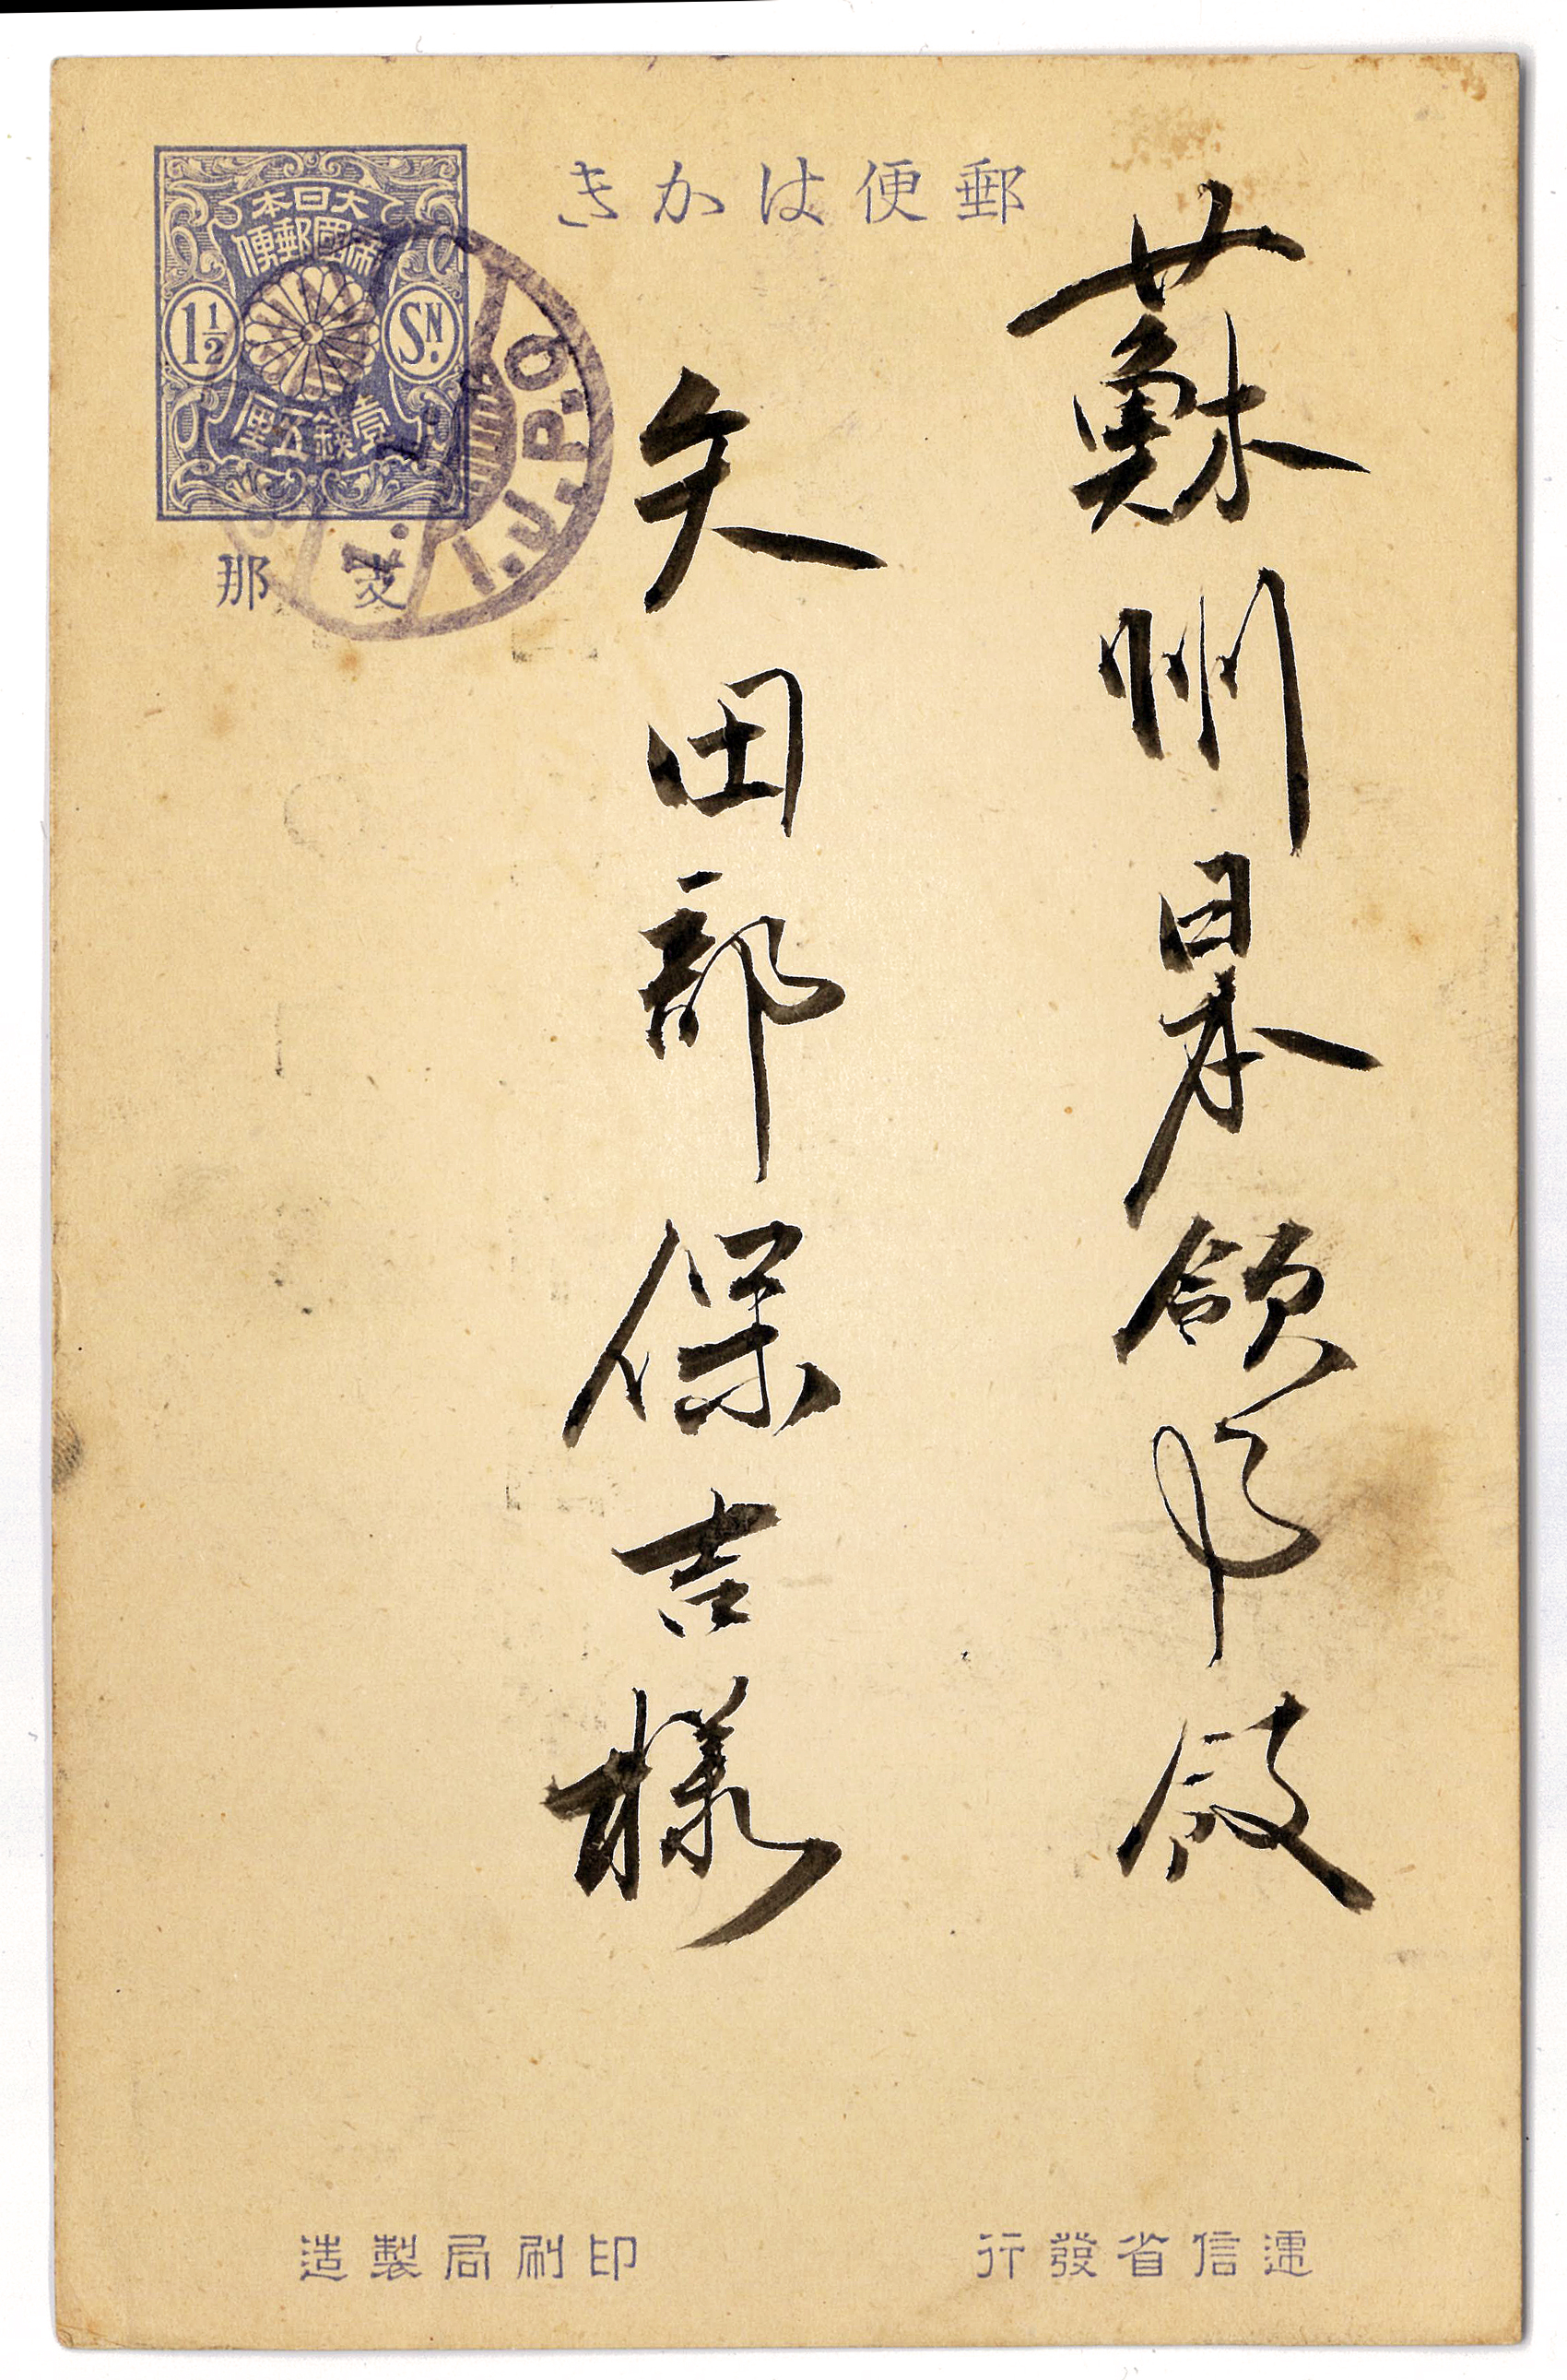 郵便はかき
大日本
帝國郵便
1½ SN.
壹錢五厘
支那
I.J.P.O.
蘇州日本領事館
矢田部保吉様
逓信省發行
印刷局製造